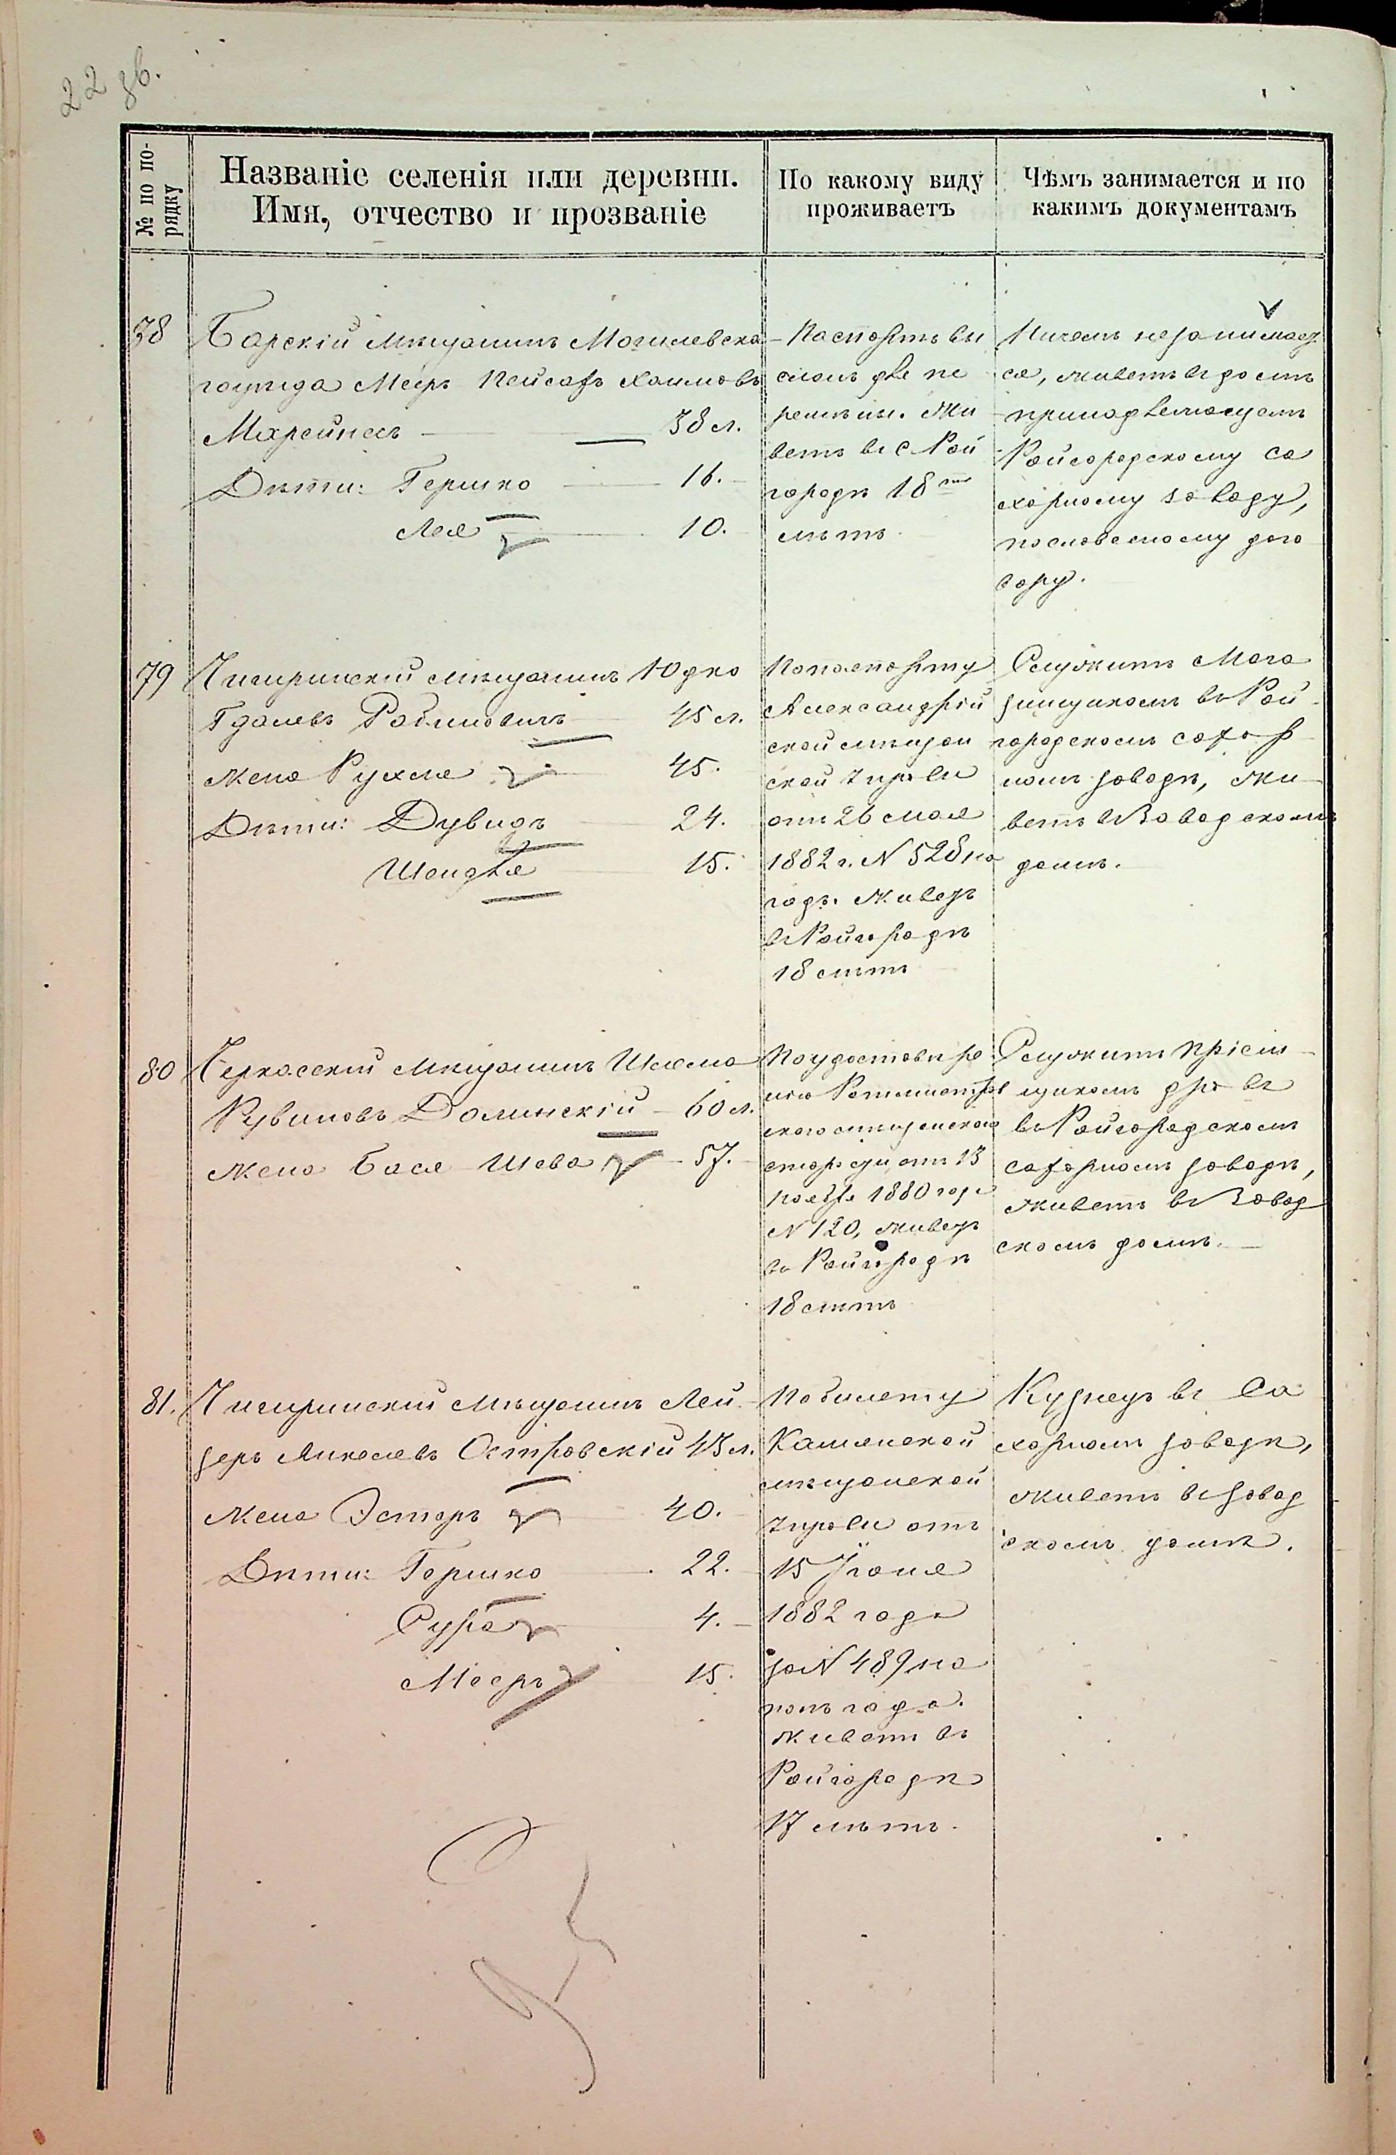 22 зв.
№ по по-
рядку
Названіе селенія или деревни.
Имя, отчество и прозваніе
По какому виду
проживаетъ
Чѣмъ занимается и по
какимъ документамъ
78
Барскій мѣщанинъ Могилевска
го уѣзда Мееръ Пейсахъ Хаимовъ
38 л.
Дѣти: Гершко 16.
Лея 10.
Паспортъ вы
сланъ для пе
ремѣны. Жи
ветъ въ с Рай
городѣ 18ть
лѣтъ
Ничемъ незанимает
ся, живетъ въ домѣ
принадлежащемъ
Райгородскому са
харному заводу,
пословесному дого
вору.
79
Чигиринскій мѣщанинъ Юдко
Гдалевъ Рабиновичъ 45 л.
жена Рухля 45.
Дѣти: Дувидъ 24.
Шендля 15.
Попаспорту
Александрій
ской мѣщан
ской управы
отъ 26 мая
1882 г. N 528 на
годъ. Живетъ
въ Райгородѣ
18 лѣтъ
Служитъ Мага
зинщикомъ въ Рай
городскомъ сахар
номъ заводѣ, жи
ветъ въ Заводскомъ
домѣ.
80
Черкасскій мѣщанинъ Шлема
Рувиновъ Долинскій 60 л.
жена Бася Шева 57.
Поудостовѣре
нію Ротмистров
скаго мѣщанскаго
старосты отъ 13
ноября 1880 года
N 120, живетъ
въ Райгородѣ
18 лѣтъ
Служитъ пріем
щикомъ дровъ
въ Райгородскомъ
сахарномъ заводѣ,
живетъ въ Завод
скомъ домѣ.
81.
Чигиринскій мѣщанинъ Лей
зеръ Янкелевъ Островскій 43 л.
жена Эстеръ 40.
Дѣти: Гершко 22.
Сура 4.
Мееръ 15.
Побилету
Каменской
мѣщанской
управы отъ
15 Іюня
1882 года
за N 489 на
полъ года.
живетъ въ
Райгородѣ
17 лѣтъ.
Кузнецъ въ Са
харномъ заводѣ,
живетъ въ завод
скомъ домѣ.